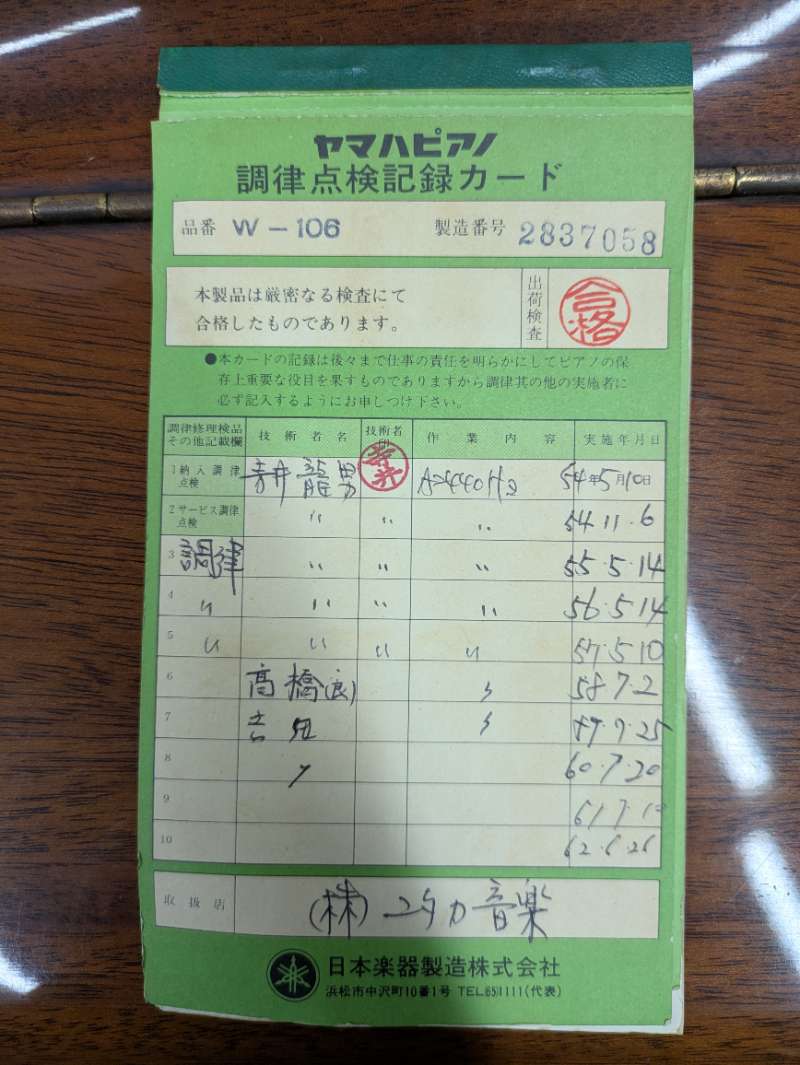 ヤマハピアノ
調律点検記録カード
品番 W-106 製造番号 2837058
本製品は厳密なる検査にて
合格したものであります。
出荷検査
合格
●本カードの記録は後々まで仕事の責任を明らかにしてピアノの保
存上重要な役目を果すものでありますから調律其の他の実施者に
必ず記入するようにお申しつけ下さい。
調律修理検品その他記載欄 技術者名 技術者印 作業内容 実施年月日
1 納入調律点検 井龍男 A=440Hz 54年5月10日
2 サービス調律点検 〃 〃 〃 54.11.6
3 調律 〃 〃 〃 55.5.14
4 〃 〃 〃 〃 56.5.14
5 〃 〃 〃 〃 57.5.10
6 高橋(良) 〃 58.7.2
7 吉田 〃 59.7.25
8 〃 60.7.20
9 61.7.
10 62.6.26
取扱店 (株)ユタカ音楽
日本楽器製造株式会社
浜松市中沢町10番1号 TEL651111(代表)